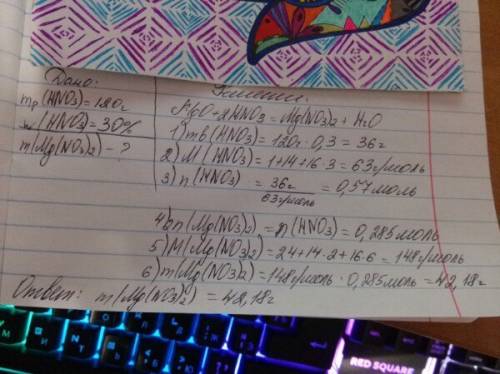 Дано:
mр(HNO3)=120г
w(HNO3)=30%
m(Mg(NO3)2)-?
Решение:
MgO+2HNO3=Mg(NO3)2+H2O
1) mв(HNO3)=120г·0,3=36г
2) M(HNO3)=1+14+16·3=63г/моль
3) n(HNO3)=36г/63г/моль=0,57моль
4) n(Mg(NO3)2)=n(HNO3)=0,285моль
5) M(Mg(NO3)2)=24+14·2+16·6=148г/моль
6) m(Mg(NO3)2)=148г/моль·0,285моль=42,18г
Ответ: m(Mg(NO3)2)=42,18г
RED SQUARE